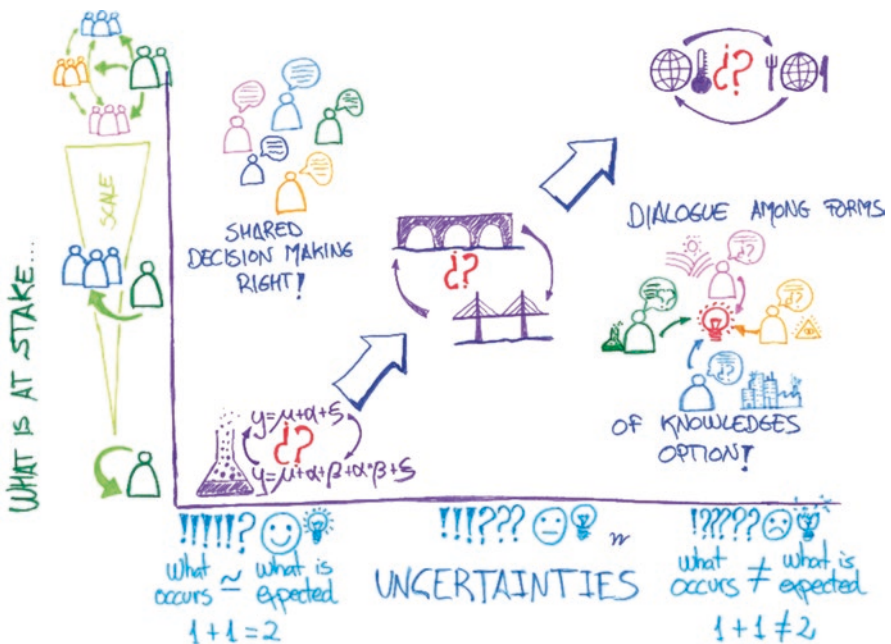 WHAT IS AT STAKE...
SCALE
SHARED
DECISION MAKING
RIGHT!
¿?
¿?
DIALOGUE AMONG FORMS
¿?
¿?
¿?
¿?
OF KNOWLEDGES
OPTION!
y=μ+α+ξ
¿?
y=μ+α+β+α*β+ξ
!!!!!!?
!!!???
!?????
What occurs ≃ what is expected
1+1=2
UNCERTAINTIES
What occurs ≠ what is expected
1+1≠2